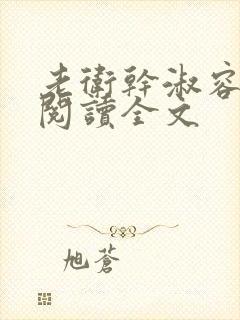 老衛幹淑容
閱讀全文
旭蒼